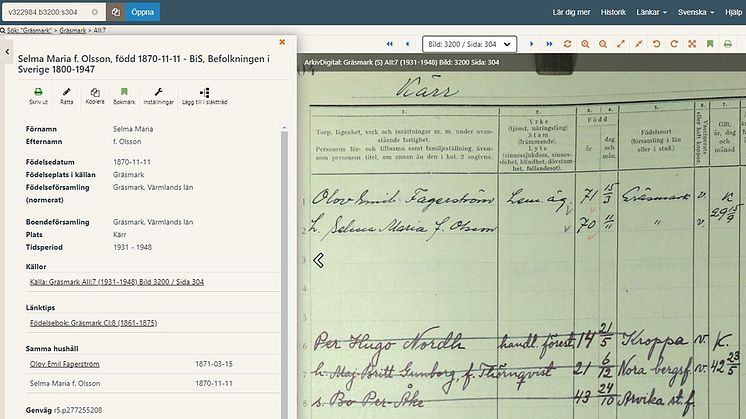 v322984.b3200.s304
Öppna
Lär dig mer
Historik
Länkar
Svenska
Hjälp
Sök: "Gräsmark" > Gräsmark > AII:7
Selma Maria f. Olsson, född 1870-11-11 - BiS, Befolkningen i
Sverige 1800-1947
Skriv ut
Rätta
Kopiera
Bokmärk
Inställningar
Lägg till i släktträd
Förnamn Selma Maria
Efternamn f. Olsson
Födelsedatum 1870-11-11
Födelseplats i källan Gräsmark
Födelseförsamling Gräsmark, Värmlands län
(normerat)
Boendeförsamling Gräsmark, Värmlands län
Plats Kärr
Tidsperiod 1931 - 1948
Källor
Källa: Gräsmark AII:7 (1931-1948) Bild 3200 / Sida 304
Länktips
Födelsebok: Gräsmark CI:8 (1861-1875)
Samma hushåll
Olov Emil Fagerström 1871-03-15
Selma Maria f. Olsson 1870-11-11
Genväg r5.p277255208
Bild: 3200 / Sida: 304
ArkivDigital: Gräsmark (S) AII:7 (1931-1948) Bild: 3200 Sida: 304
Kärr
1. 2. 3. 4. 5. 6. 7.
Torp, lägenhet, verk och inrättningar m. m. under ovan-
stående fastighet.
Personens för- och tillnamn samt familjeställning, även-
som personens titel, om annan än den i kol. 2 angivna.
Yrke
(tjänst, näringsfång)
Stam
(främmande).
Lyte
(sinnessjukdom, sinnes-
slöhet, blindhet, dövstumhet,
fallandesot).
Född
år
dag
och
mån.
Födelseort
(församling i län
eller i stad).
Gift,
år,
dag och
månad
1 Olov Emil Fagerström Lem.äg. 71 15/3 Gräsmark v. K
2 h. Selma Maria f. Olsson 70 11/11 " v. 29 15/9
3
6 Per Hugo Nordh handl. förest. 14 21/5 Kroppa v. K.
7 h. Maj-Britt Gunborg, f. Thörnqvist 21 6/12 Nora bergsf. v. 42 23/5
8 s. Bo Per-Åke 43 24/10 Arvika st.f.